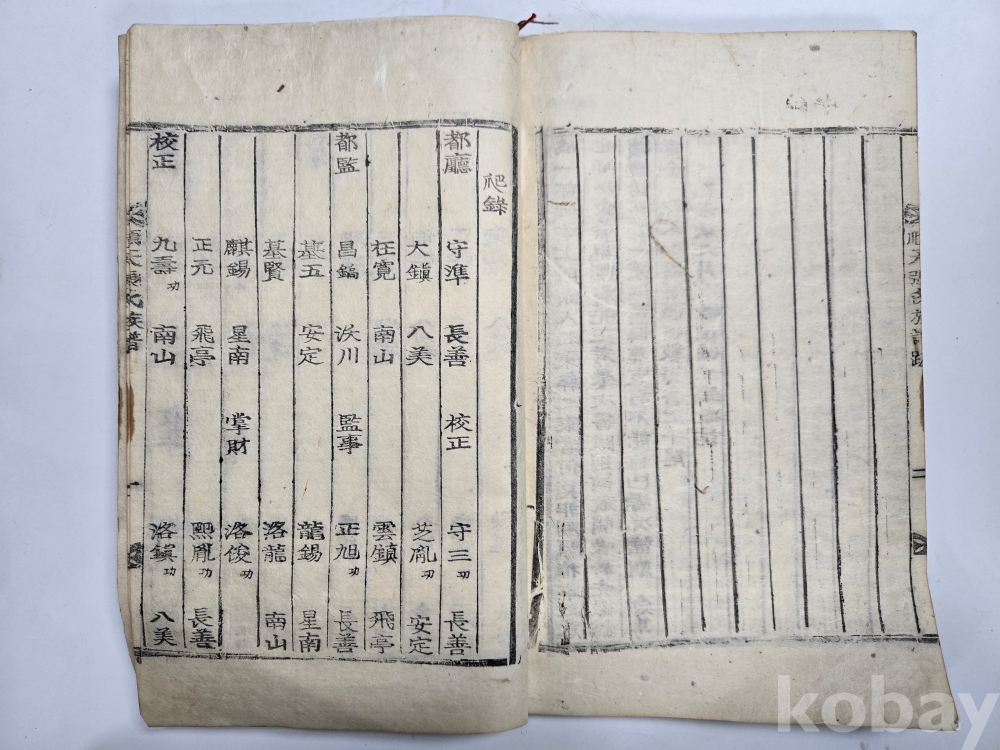 順天張氏族譜跋 二
錄
都廳 守準 長善 校正 守三功 長善
大鎭 八美 芝胤功 安定
枉寬 南山 雲鎭 飛亭
都監 昌鎬 沃川 監事 正旭功 長善
基五 安定 龍錫 星南
基賢 洛龍 南山
麒錫 星南 掌財 洛俊功
正元 飛亭 熙胤功 長善
校正 九壽功 南山 洛鎭功 八美
順天張氏族譜 一
kobay